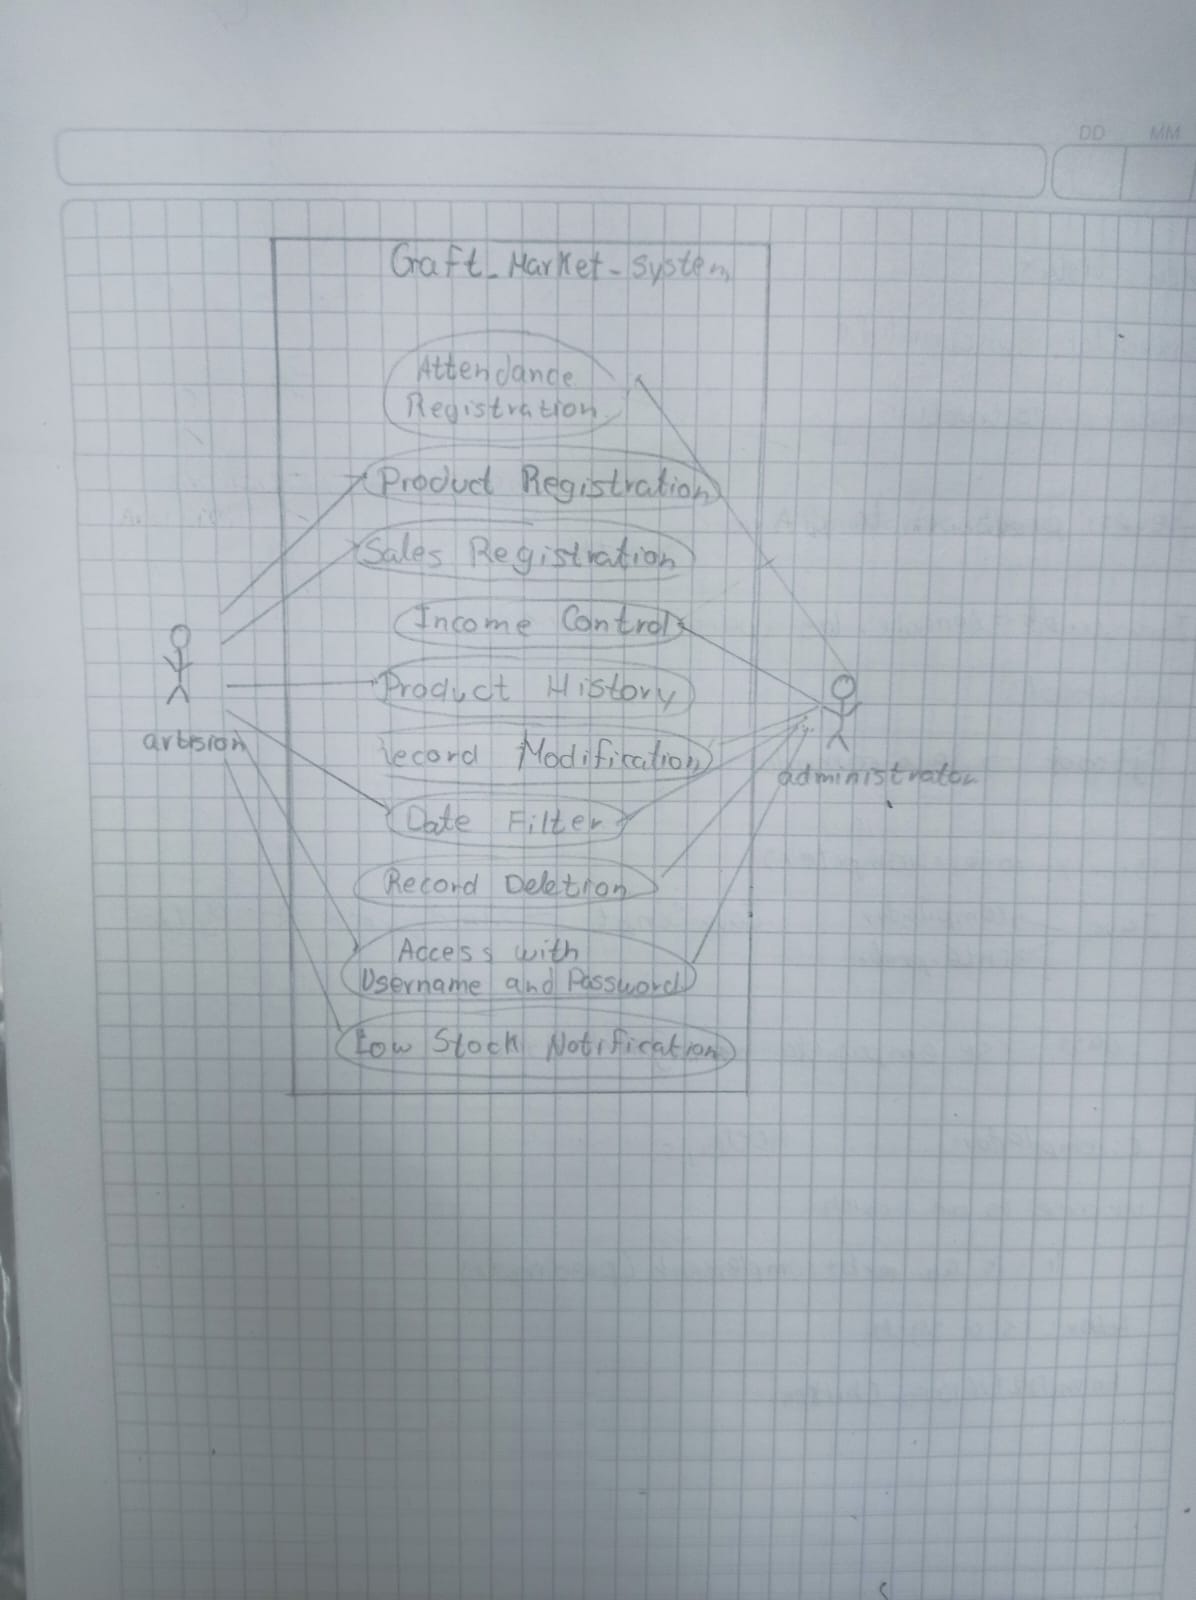 DD MM
Craft_Market-System
Attendance
Registration
Product Registration
Sales Registration
Income Control
Product History
Record Modification
Date Filter
Record Deletion
Access with
Username and Password
Low Stock Notification
artision
administrator